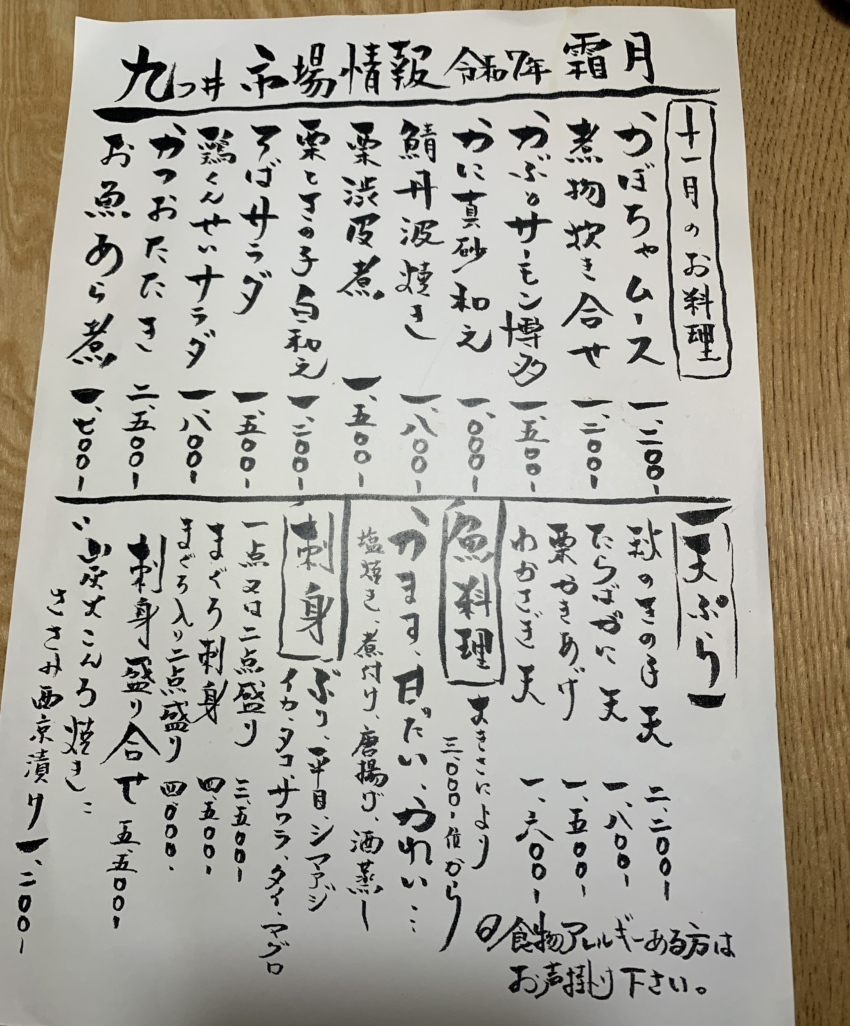 九つ井 市場情報 令和7年 霜月
十一月のお料理
かぼちゃムース 一、二〇〇-
煮物炊き合せ 一、二〇〇-
かぶらサーモン博多 一、五〇〇-
かに真砂和え 一、〇〇〇-
鯖丹波焼き 一、八〇〇-
栗渋皮煮 一、五〇〇-
栗ときの子白和え 一、二〇〇-
そばサラダ 一、五〇〇-
鶏くんせいサラダ 一、八〇〇-
かつおたたき 二、五〇〇-
お魚あら煮 一、七〇〇-
天ぷら
秋のきの子天 二、二〇〇-
たらばがに天 一、八〇〇-
栗かきあげ 一、五〇〇-
わかさぎ天 一、六〇〇-
魚料理
大きさにより
三、〇〇〇-位から
かます、甘だい、かれい…
塩焼き、煮付け、唐揚げ、酒蒸し
刺身
ぶり、平目、シマアジ
イカ、タコ、サワラ、タイ、マグロ
一点又は二点盛り 三、五〇〇-
まぐろ刺身 四、五〇〇-
まぐろ入り二点盛り 四、〇〇〇-
刺身盛り合せ 五、五〇〇-
〃炭火こんろ焼き〃
ささみ西京漬け 一、二〇〇-
食物アレルギーある方は
お声掛け下さい。